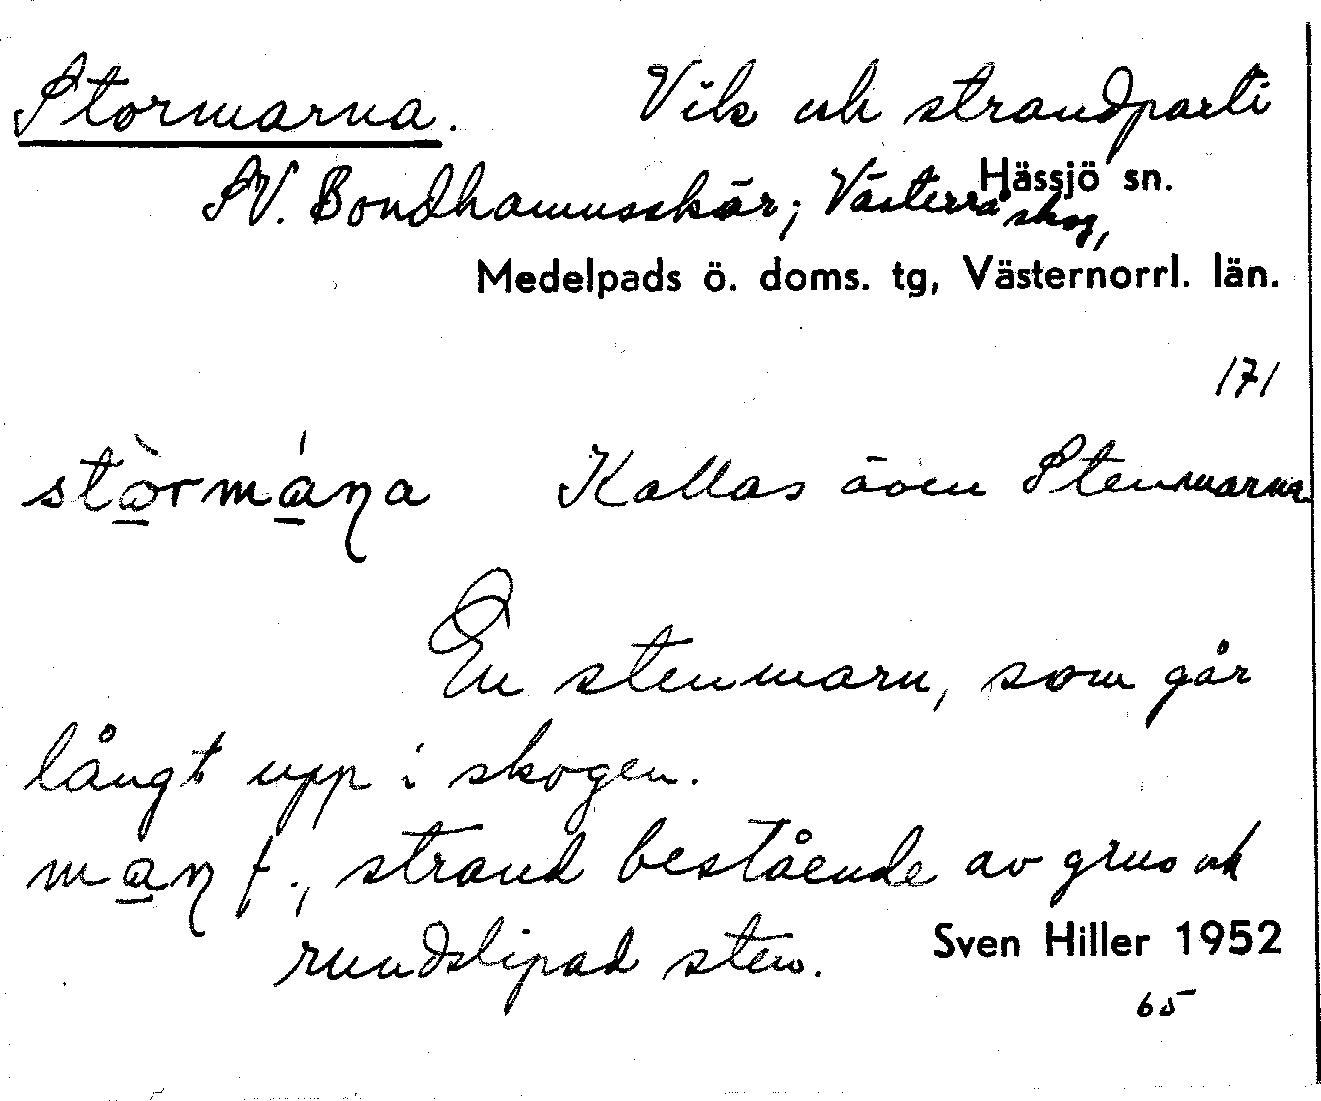 Stormarna. Vik och strandparti
SV. Bondhamnsskär; Västerrå skog,
Hässjö sn.
Medelpads ö. doms. tg, Västernorrl. län.
171
stòrmáŋa Kallas även Stenmarna
En stenmarn, som går
långt upp i skogen.
maŋ f., strand bestående av grus och
rundslipad sten.
Sven Hiller 1952
65